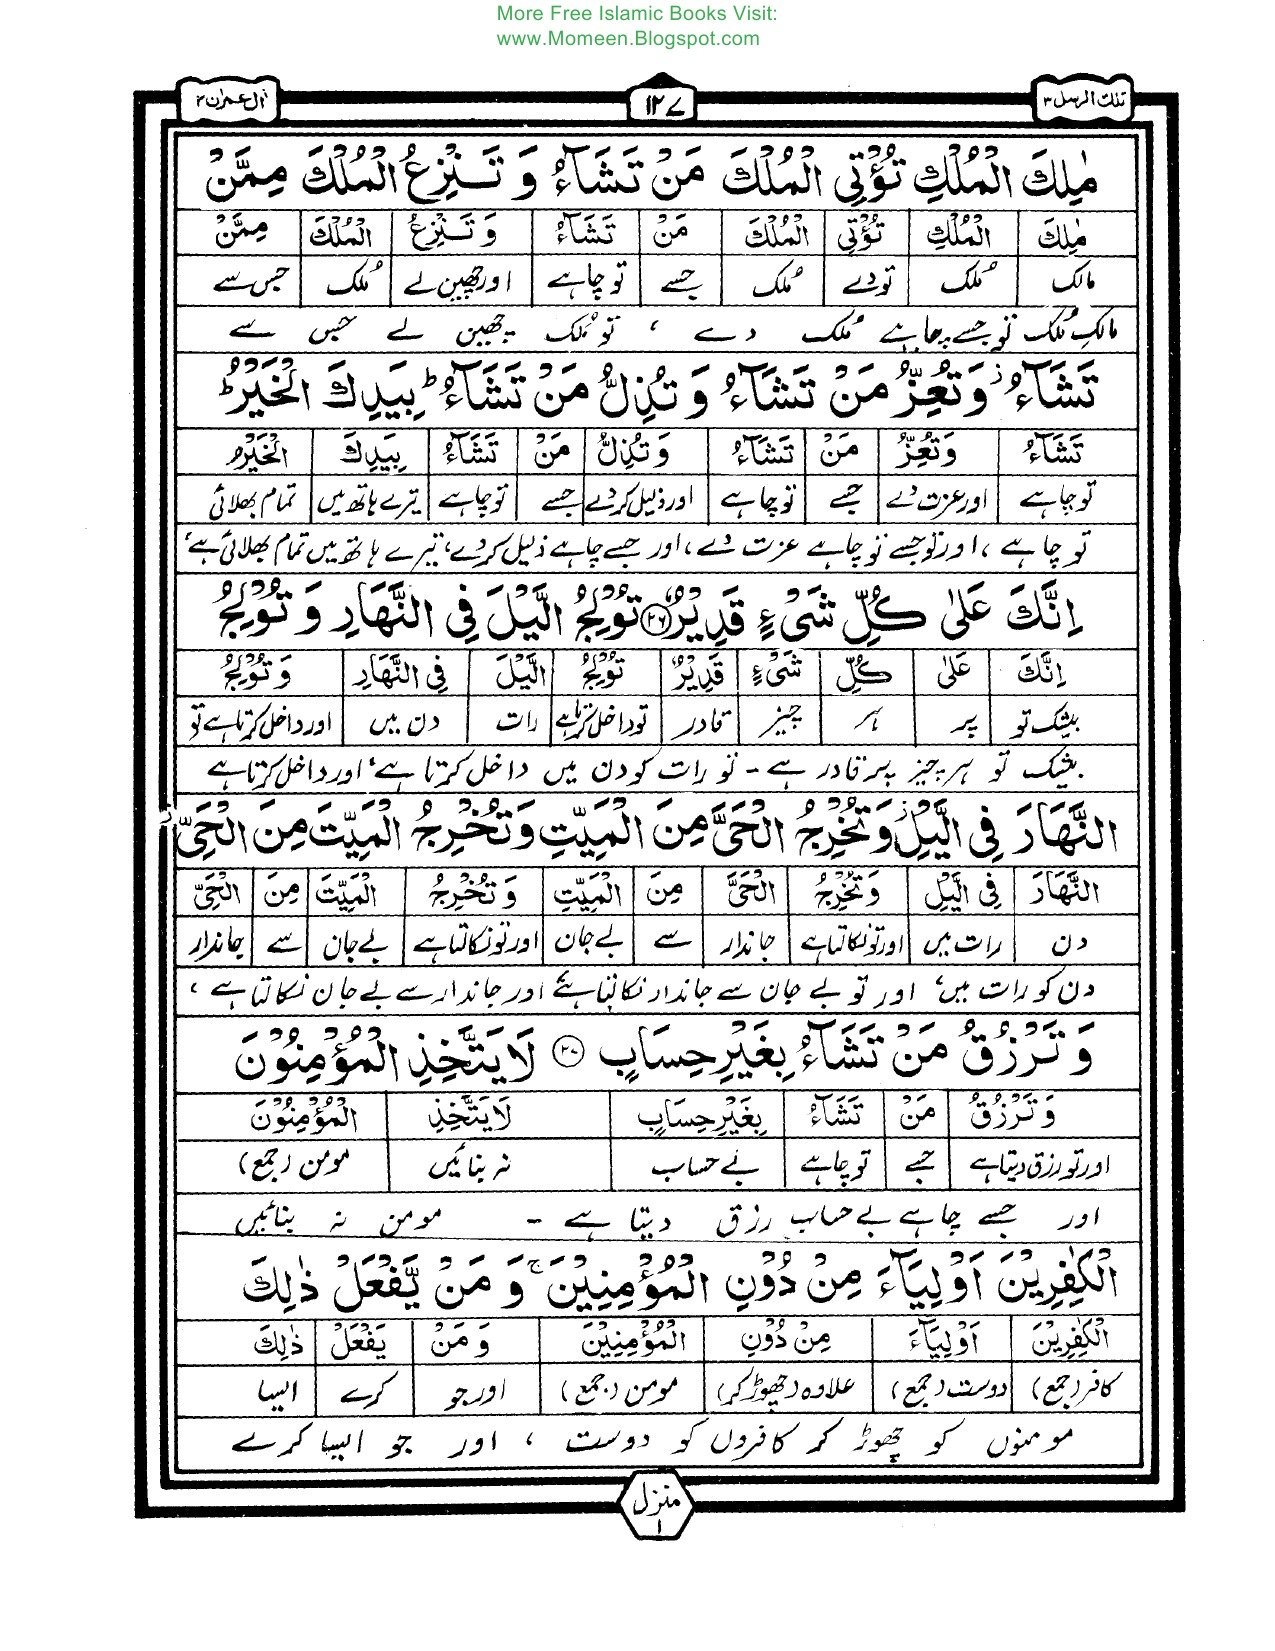 More Free Islamic Books Visit:
www.Momeen.Blogspot.com
تلك الرسل ۳
۱۲۷
اٰل عمران ۳
مٰلِكَ الْمُلْكِ تُؤْتِی الْمُلْكَ مَنْ تَشَآءُ وَ تَنْزِعُ الْمُلْكَ مِمَّنْ
مٰلِكَ الْمُلْكِ تُؤْتِی الْمُلْكَ مَنْ تَشَآءُ وَ تَنْزِعُ الْمُلْكَ مِمَّنْ
مالک مُلک تو دے مُلک جسے تو چاہے اور چھین لے مُلک جس سے
مالکِ مُلک تو جسے چاہے مُلک دے ، تو مُلک چھین لے جس سے
تَشَآءُ ز وَتُعِزُّ مَنْ تَشَآءُ وَ تُذِلُّ مَنْ تَشَآءُ ط بِیَدِكَ الْخَیْرُ ط
تَشَآءُ وَتُعِزُّ مَنْ تَشَآءُ وَ تُذِلُّ مَنْ تَشَآءُ بِیَدِكَ الْخَیْرُ
تو چاہے اور عزت دے جسے تو چاہے اور ذلیل کر دے جسے تو چاہے تیرے ہاتھ میں تمام بھلائی
تو چاہے ، اور تو جسے تو چاہے عزت دے ، اور جسے چاہے ذلیل کر دے ، تیرے ہاتھ میں تمام بھلائی ہے ،
اِنَّكَ عَلٰی كُلِّ شَیْءٍ قَدِیْرٌ ۲۶ تُوْلِجُ الَّیْلَ فِی النَّهَارِ وَ تُوْلِجُ
اِنَّكَ عَلٰی كُلِّ شَیْءٍ قَدِیْرٌ تُوْلِجُ الَّیْلَ فِی النَّهَارِ وَ تُوْلِجُ
بیشک تو پر ہر چیز قادر تو داخل کرتا ہے رات دن میں اور داخل کرتا ہے تو
بیشک تو ہر چیز پر قادر ہے - تو رات کو دن میں داخل کرتا ہے ، اور داخل کرتا ہے
النَّهَارَ فِی الَّیْلِ ز وَتُخْرِجُ الْحَیَّ مِنَ الْمَیِّتِ وَتُخْرِجُ الْمَیِّتَ مِنَ الْحَیِّ ز
النَّهَارَ فِی الَّیْلِ وَتُخْرِجُ الْحَیَّ مِنَ الْمَیِّتِ وَ تُخْرِجُ الْمَیِّتَ مِنَ الْحَیِّ
دن رات میں اور تو نکالتا ہے جاندار سے بے جان اور تو نکالتا ہے بے جان سے جاندار
دن کو رات میں ، اور تو بے جان سے جاندار نکالتا ہے ، اور جاندار سے بے جان نکالتا ہے ،
وَ تَرْزُقُ مَنْ تَشَآءُ بِغَیْرِ حِسَابٍ ۲۷ لَا یَتَّخِذِ الْمُؤْمِنُوْنَ
وَ تَرْزُقُ مَنْ تَشَآءُ بِغَیْرِ حِسَابٍ لَا یَتَّخِذِ الْمُؤْمِنُوْنَ
اور تو رزق دیتا ہے جسے تو چاہے بے حساب نہ بنائیں مومن (جمع)
اور جسے چاہے بے حساب رزق دیتا ہے - مومن نہ بنائیں
الْكٰفِرِیْنَ اَوْلِیَآءَ مِنْ دُوْنِ الْمُؤْمِنِیْنَ ج وَ مَنْ یَّفْعَلْ ذٰلِكَ
الْكٰفِرِیْنَ اَوْلِیَآءَ مِنْ دُوْنِ الْمُؤْمِنِیْنَ وَ مَنْ یَفْعَلْ ذٰلِكَ
کافر (جمع) دوست (جمع) علاوہ (چھوڑ کر) مومن (جمع) اور جو کرے ایسا
مومنوں کو چھوڑ کر کافروں کو دوست ، اور جو ایسا کرے
منزل
۱